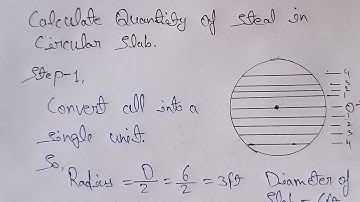 Calculate Quantity of steal in
Circular Slab.
Step-1,
Convert all into a
single unit.
So,
Radius = D/2 = 6/2 = 3ft Diameter of
4
3
2
1
0
1
2
3
4